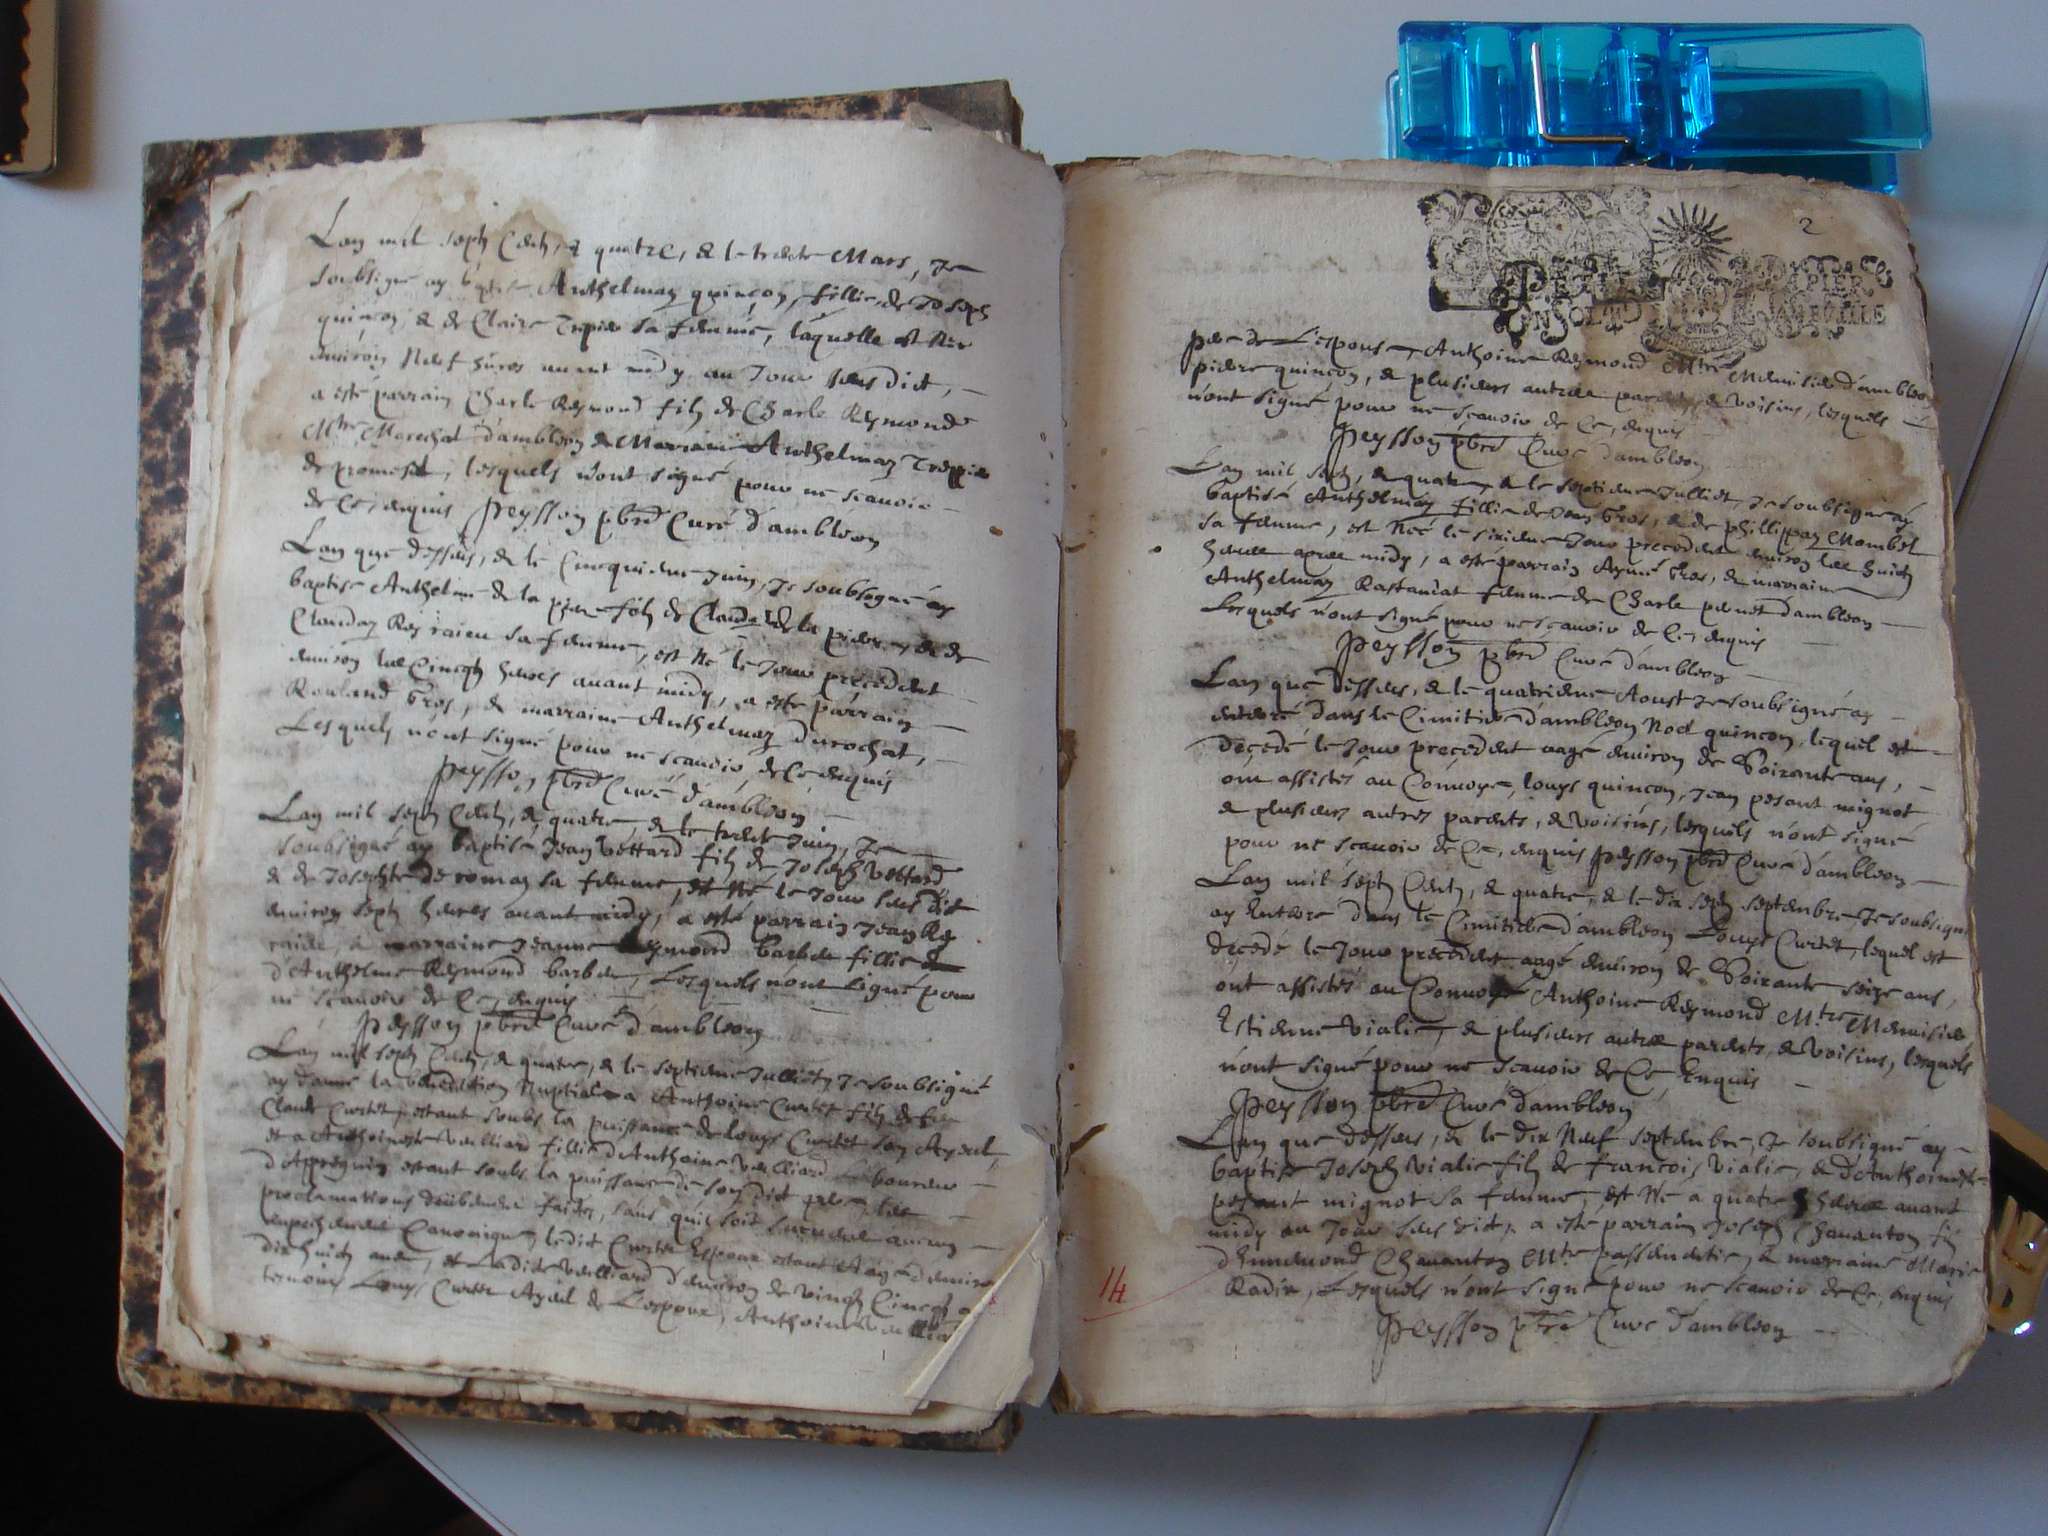 Lan mil sept Cent, & quatre, & le trente Mars, Je
soubsigné ay baptisé Anthelmaz quinçon, fillie, de Joseph
quinçon, & de Claire Trepier sa femme, laquelle est née
environ neuf heures avant midy, au Jour sus dict,
a esté parrain Charle Reymond filz de Charle Reymond
Mtre Marechal d'ambleon & Marraine Anthelmaz Treppier
de premeset, lesquels n'ont signé pour ne sçavoir
de Ce, enquis Peysson pbre Curé d'ambleon
Lan que dessus, & le Cincquieme Juin, Je soubsigné ay
baptisé Anthelme de la pierre filz de Claude de la pierre, & de
Claudaz Reyraieu sa femme, est Né le Jour precedent
environ les Cincqz heures avant midy, a esté parrain
Rouland Gros, & marraine Anthelmaz Durochat,
Lesquels n'ont signé pour ne scavoir de Ce enquis
Peysson pbre Curé d'ambleon
Lan mil sept Cent, & quatre, & le trente Juin, Je
soubsigné ay baptisé Jean Vettard filz de Joseph Vettard
& de Josephte de romaz sa femme, est Né le Jour sus dit
environ sept heures avant midy, a esté parrain Jean Rey
raieu, & marraine Jeanne Reymond barbeu fillie
d'Anthelme Reymond barbeu, Lesquels n'ont signé pour
ne scavoir de Ce, enquis
Peysson pbre Curé d'ambleon
Lan mil sept Cent, & quatre, & le septieme Julliet, Je soubsigné
ay donné la benediction Nuptiale a Anthoine Curtet filz de feu
Claude Curtet, estant soubs la puissance de Louys Curtet son Ayeul,
et a Anthoinette Valliard fillie d'Anthoine Valliard Laboureur
d'Appregnin estant soubs la puissance de son dict pere, les
proclamations deubement faites, sans quil soit survenu aucun
empechement Canonique, ledict Curtet Espoux estant Aagé denviron
dix huict ans, et Ladite Valliard d'environ de vingt Cincqz ans
temoins Louys Curtet Ayeul de L'espoux, Anthoine Valliard
2
PETIT PAPIER
pere de L'espouse, Anthoine Reymond Mtre Menuisier d'ambleon
pierre quincon, & plusieurs autres parents, & voisins, lesquels
n'ont signé pour ne sçavoir de Ce, enquis
Peysson pbre Curé d'ambleon
Lan mil sept, & quatre, & le septieme Julliet, Je soubsigné ay
baptisé Anthelmaz fillie de Jean Gros, & de phillippaz Mombel
sa femme, est Neé le sixieme Jour precedent environ les huict
heures apres midy, a esté parrain Aymé Gros, & marraine
Anthelmaz Rastaniat femme de Charle penet d'ambleon
Lesquels n'ont signé pour ne sçavoir de Ce, enquis
Peysson pbre Curé d'ambleon
Lan que dessus, & le quatrieme Aoust Je soubsigné ay
enterré dans le Cimitiere d'ambleon Noel quincon, lequel est
decedé le Jour precedent aagé environ de Soixante ans,
ont assistés au Convoye, Louys quincon, Jean pesant mignot
& plusieurs autres parents, & voisins, lesquels n'ont signé
pour ne scavoir de Ce, enquis Peysson pbre Curé d'ambleon
Lan mil sept Cent, & quatre, & le dix sept septembre, Je soubsigné
ay Enterré dans le Cimitiere d'ambleon Louys Curtet, lequel est
decedé le Jour precedent aagé environ de Soixante seize ans,
ont assistés au Convoye Anthoine Reymond Mtre Menuisier
Estienne Vialie, & plusieurs autres parents, & voisins, lesquels
n'ont signé pour ne scavoir de Ce, Enquis
Peysson pbre Curé d'ambleon
Lan que dessus, & le dix Neuf septembre, Je soubsigné ay
baptisé Joseph Vialie filz de francois Vialie, & d'Anthoinette
pesant mignot sa femme, est Né a quatre heures avant
midy au Jour sus dict, a esté parrain Joseph Chavanton filz
d'Ennemond Chavanton Mtre passementier, & marraine Marie
Radix, Lesquels n'ont signé pour ne scavoir de Ce, enquis
Peysson pbre Curé d'ambleon
14